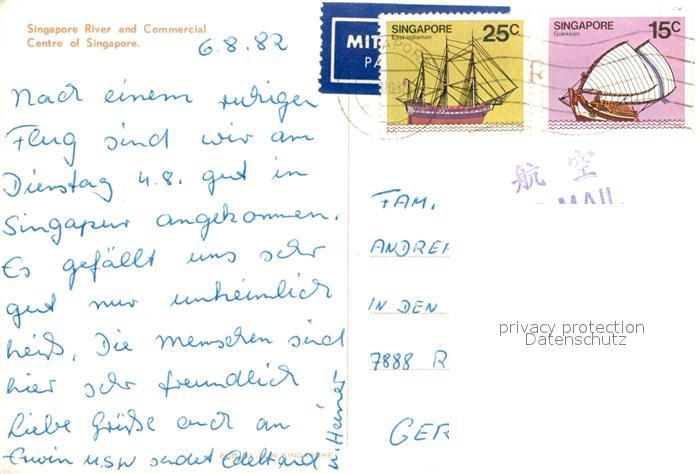 Singapore River and Commercial
Centre of Singapore.
6.8.82
Nach einem ruhigen
Flug sind wir am
Dienstag 4.8. gut in
Singapur angekommen.
Es gefällt uns sehr
gut nur unheimlich
heiß. Die Menschen sind
hier sehr freundlich
Liebe Grüße auch an
Erwin usw sendet Edeltraud
u. Heiner
MIT
PA
SINGAPORE 25C
East Indiaman
SINGAPORE 15C
Golekkan
航空
MAIL
FAM.
ANDRE
IN DEN
7888 R
GER
privacy protection
Datenschutz